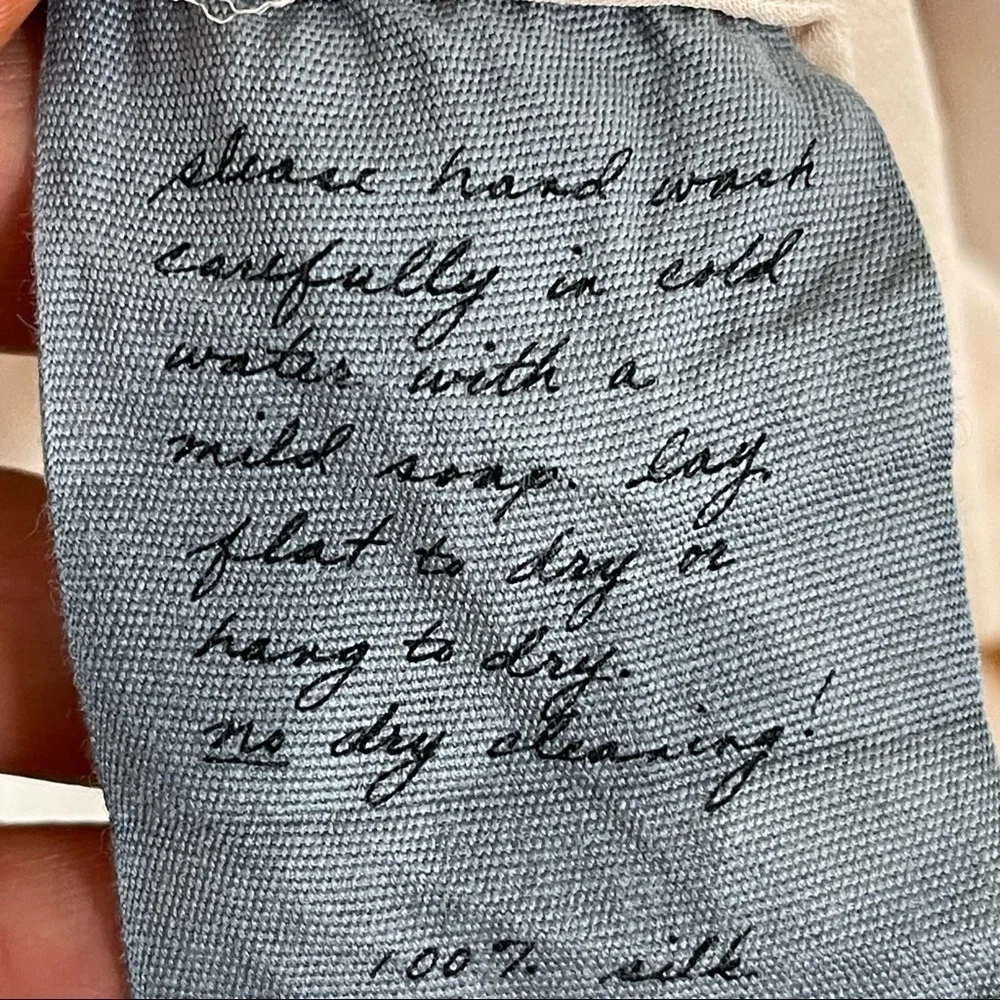 please hand wash
carefully in cold
water with a
mild soap. lay
flat to dry or
hang to dry.
no dry cleaning!
100% silk